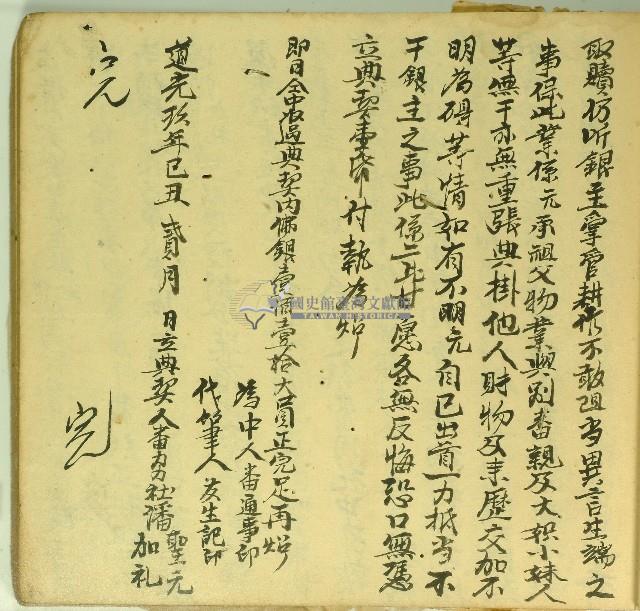 取贖仍听銀主掌管耕作不敢阻当異言生端之
事保此業係元承祖父物業與別番親及大姉小妹人
等無干亦無重張典掛他人財物及來歷交加不
明為碍等情如有不明元自己出首一力抵当不
干銀主之事此係二比甘愿各無反悔恐口無憑
立典契壹帋付執為炤
即日仝中收過典契内佛銀壹佰壹拾大員正完足再炤
為中人番通事印
代筆人 發生記印
道光玖年己丑 貳月 日立典契人番 社潘
聖元
加礼
國史館臺灣文獻館
TAIWAN HISTORICA